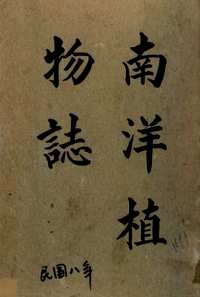 南洋植
物誌
民國八年